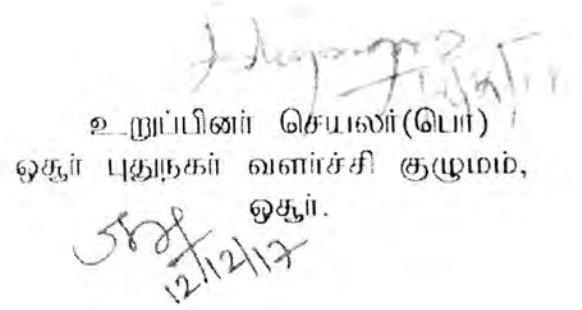 உறுப்பினர் செயலர்(பொ)
ஓசூர் புதுநகர் வளர்ச்சி குழுமம்,
ஓசூர்.
12/12/17